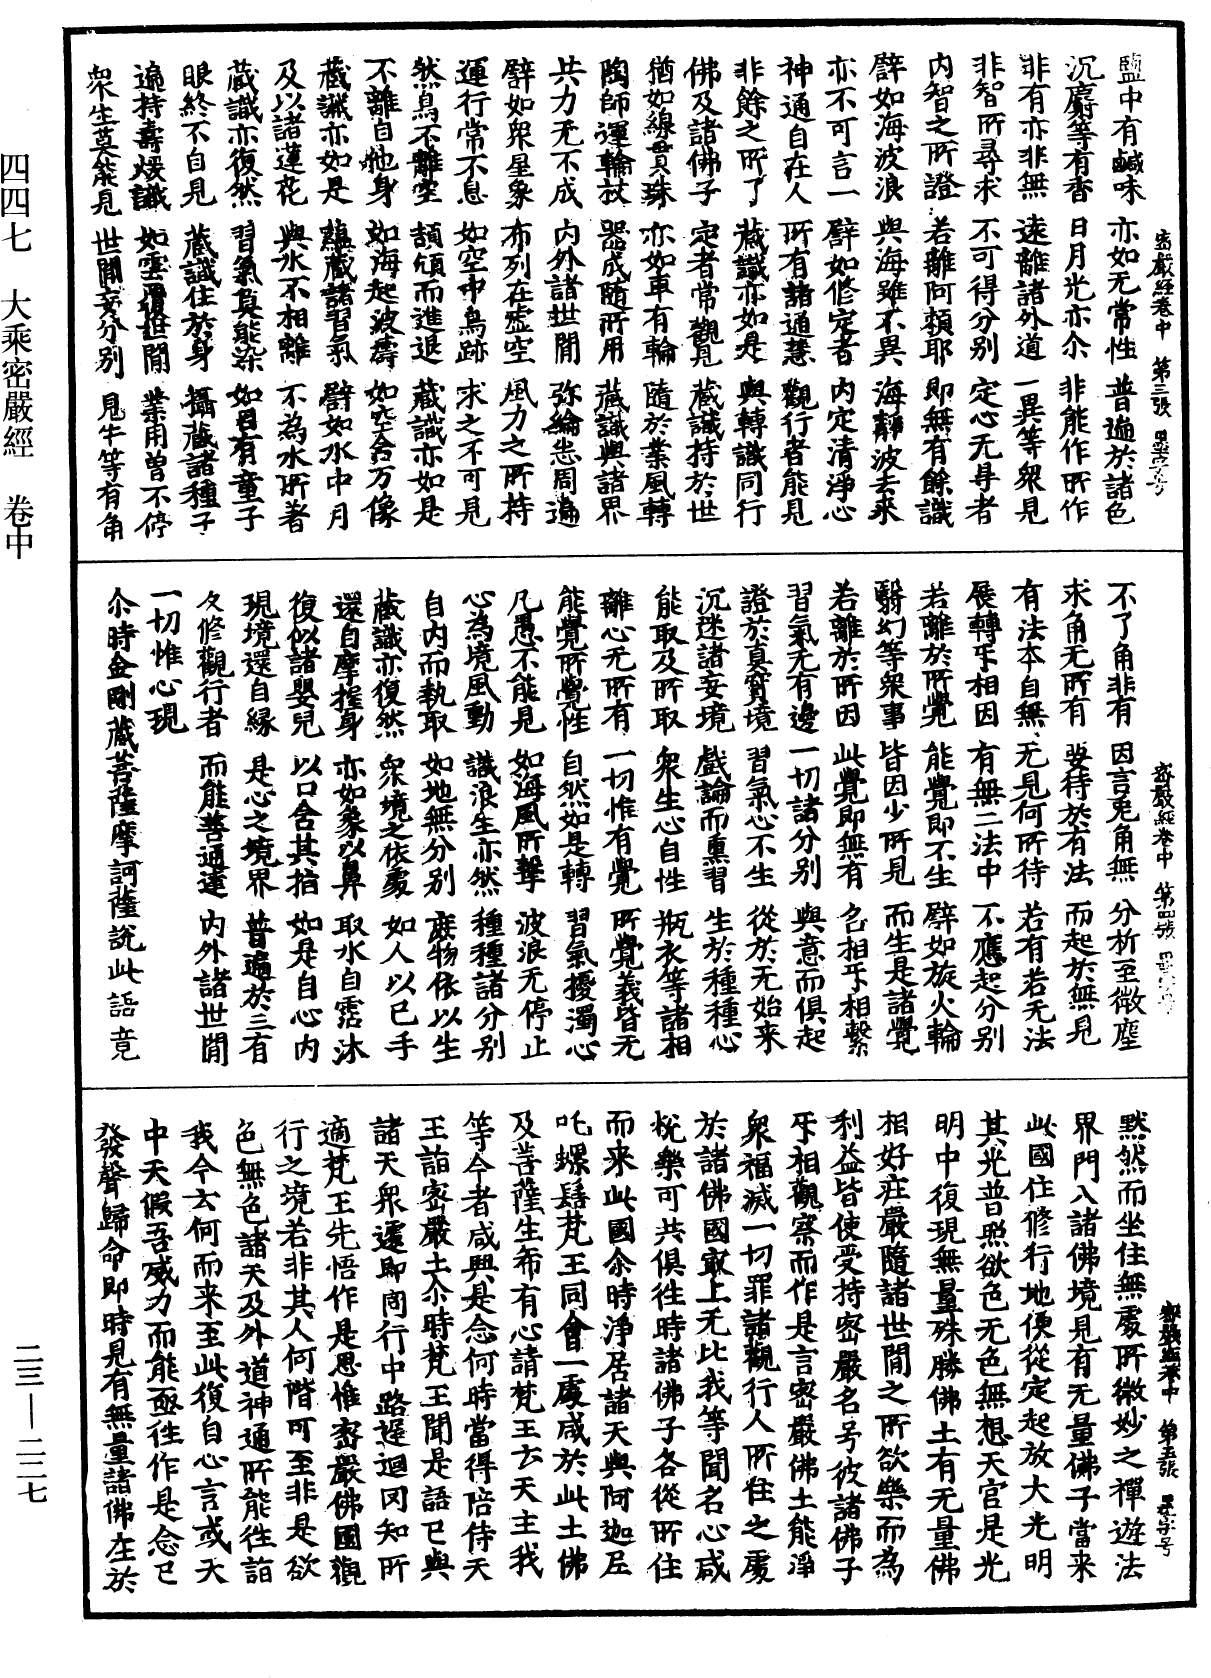 鹽中有鹹味 亦如无常性 普遍於諸色
沉麝等有香 日月光亦尒 非能作所作
非有亦非無 遠離諸外道 一異等衆見
非智所尋求 不可得分別 定心无㝵者
內智之所證 若離阿頼耶 即無有餘識
譬如海波浪 與海雖不異 海靜波去来
亦不可言一 譬如修定者 內定清淨心
神通自在人 所有諸通慧 觀行者能見
非餘之所了 藏識亦如是 與轉識同行
佛及諸佛子 定者常觀見 藏識持於世
猶如線貫珠 亦如車有輪 隨於業風轉
陶師運輪杖 器成随所用 藏識與諸界
共力无不成 內外諸世間 弥綸悉周遍
譬如衆星象 布列在虛空 風力之所持
運行常不息 如空中鳥跡 求之不可見
然鳥不離空 頡頏而進退 藏識亦如是
不離自他身 如海起波濤 如空含万像
藏識亦如是 蘊藏諸習氣 譬如水中月
及以諸蓮花 與水不相離 不為水所著
藏識亦復然 習氣莫能染 如目有童子
眼終不自見 藏識住於身 攝藏諸種子
遍持壽煖識 如雲覆世間 業用曽不停
衆生莫能見 世間妄分別 見牛等有角
不了角非有 因言兎角無 分析至微塵
求角无所有 要待於有法 而起於無見
有法本自無 无見何所待 若有若无法
展轉㸦相因 有無二法中 不應起分別
若離於所覺 能覺即不生 譬如旋火輪
翳幻等衆事 皆因少所見 而生是諸覺
若離於所因 此覺即無有 名相㸦相繫
習氣无有邊 一切諸分別 與意而俱起
證於真實境 習氣心不生 從於无始来
沉迷諸妄境 戲論而熏習 生於種種心
能取及所取 衆生心自性 瓶衣等諸相
離心无所有 一切惟有覺 所覺義皆无
能覺所覺性 自然如是轉 習氣擾濁心
凡愚不能見 如海風所擊 波浪无停止
心為境風動 識浪生亦然 種種諸分別
自內而執取 如地無分別 庶物依以生
藏識亦復然 衆境之依處 如人以已手
還自摩捉身 亦如象以鼻 取水自霑沐
復似諸嬰兒 以口含其指 如是自心內
現境還自緣 是心之境界 普遍於三有
久修觀行者 而能善通達 內外諸世間
一切惟心現
尒時金剛藏菩薩摩訶薩說此語竟
默然而坐住無處所微妙之禪遊法
界門八諸佛境見有无量佛子當来
此國住修行地便從定起放大光明
其光普照欲色无色無想天宮是光
明中復現無量殊勝佛土有无量佛
相好莊嚴隨諸世間之所欲樂而為
利益皆使受持密嚴名号彼諸佛子
㸦相觀察而作是言密嚴佛土能淨
衆福滅一切罪諸觀行人所住之處
於諸佛國㝡上无比我等聞名心咸
悅樂可共俱徃時諸佛子各從所住
而来此國尒時淨居諸天與阿迦尼
吒螺髻梵王同會一處咸於此土佛
及菩薩生希有心請梵王去天主我
等今者咸興是念何時當得陪侍天
王詣密嚴土尒時梵王聞是語已與
諸天衆遽即同行中路遲迴罔知所
適梵王先悟作是思惟密嚴佛國觀
行之境若非其人何階可至非是欲
色無色諸天及外道神通所能徃詣
我今云何而来至此復自心言或天
中天假吾威力而能亟徃作是念已
發聲歸命即時見有無量諸佛在於
密嚴經卷中 第三張
密嚴經卷中 第四張
密嚴經卷中 第五張
四四七 大乘密嚴經 卷中
二三—二二七